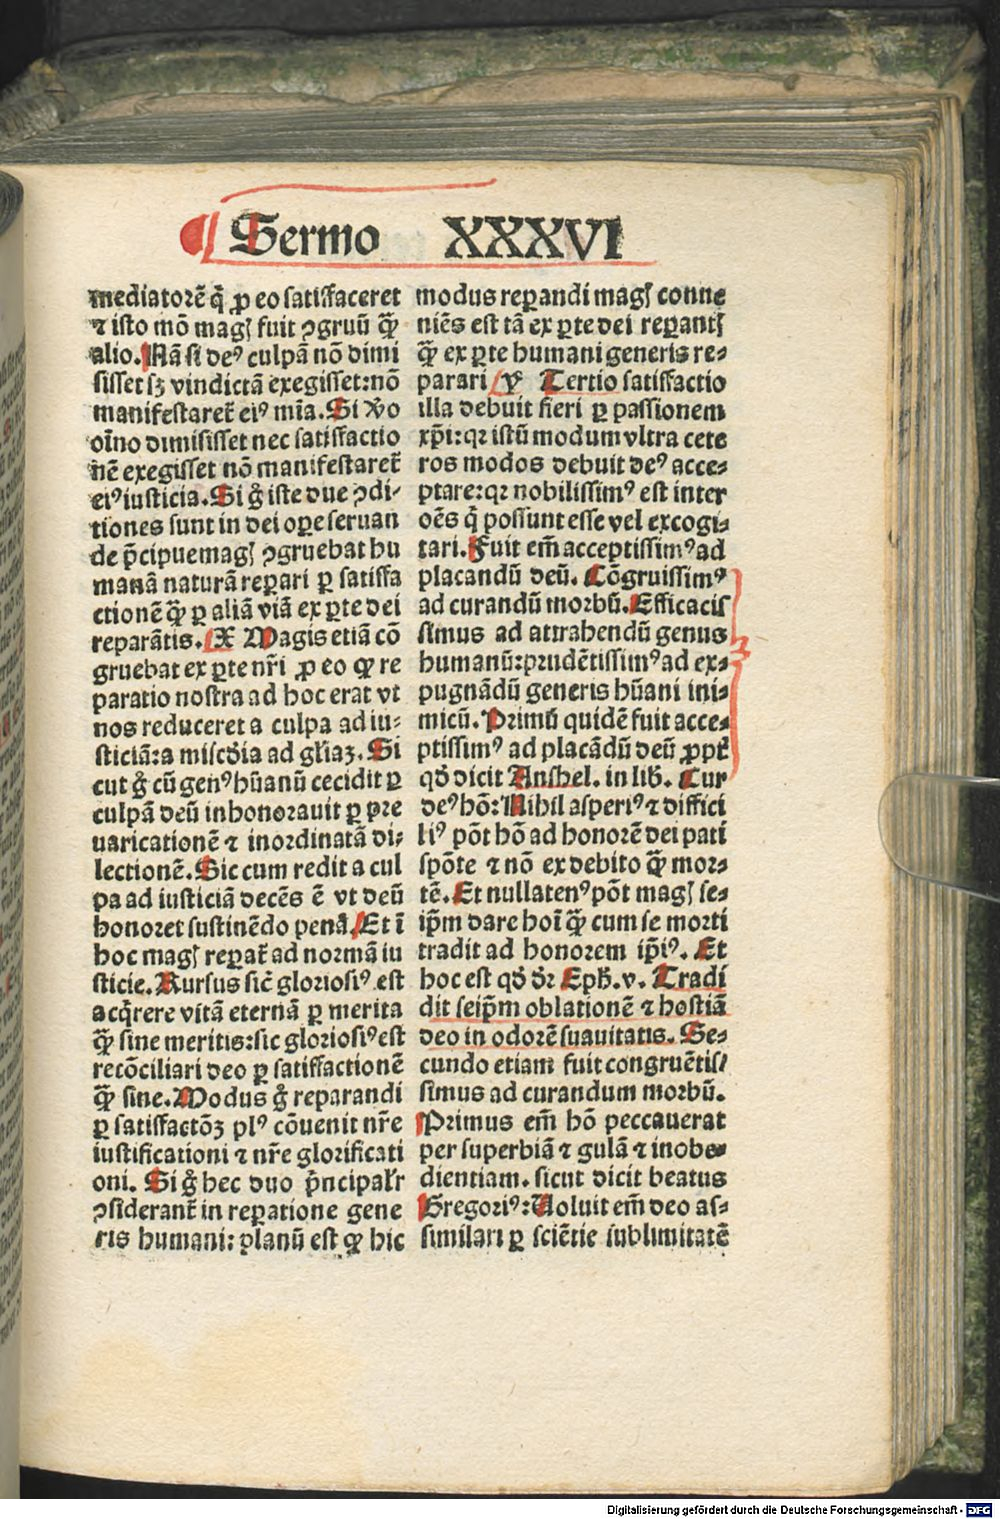 Sermo XXXVI
mediatorē q̄ ꝓ eo satiſfaceret
⁊ isto mō magꝭ fuit ꝯgruū qͣ̄
alio. Nā si deꝰ culpā nō dimi
sisset sꝫ vindictā exegisset: nō
manifestaret̄ eiꝰ mīa. Si v̓o
oīno dimisisset nec satiſfactio
nē exegisset nō manifestaret̄
eiꝰ iusticia. Si g̊ iste due ꝯdi⸗
tiones sunt in dei oꝑe seruan
de p̄cipue magꝭ ꝯgruebat hu
manā naturā reꝑari ꝑ satiſfa
ctionē qͣ̄ ꝑ aliā viā ex ꝑte dei
reparātis. X Magis etiā cō
gruebat ex ꝑte nr̄i ꝓ eo ꝙ re
paratio nostra ad hoc erat vt
nos reduceret a culpa ad iu⸗
sticiā: a misc̄dia ad gl̓iaꝫ. Si
cut g̊ cū genꝰ hūanū cecidit ꝑ
culpā deū inhonorauit ꝑ pre
uaricationē ⁊ inordinatā di⸗
lectionē. Sic cum redit a cul
pa ad iusticiā decēs ē vt deū
honoret sustinēdo penā. Et ī
hoc magꝭ reꝑat̄ ad normā iu
sticie. Rursus sic̄ gloriosiꝰ est
acq̄rere vitā eternā ꝑ merita
qͣ̄ sine meritis: sic gloriosiꝰ est
recōciliari deo ꝑ satiſfactionē
qͣ̄ sine. Modus g̊ reparandi
ꝑ satiſfactōꝫ plꝰ cōuenit nr̄e
iustificationi ⁊ nr̄e glorificati
oni. Si g̊ hec duo p̄ncipal̓r
ꝯsiderant̄ in reꝑatione gene
ris humani: planū est ꝙ hic
modus reꝑandi magꝭ conue
niēs est tā ex ꝑte dei reꝑantꝭ
qͣ̄ ex ꝑte humani generis re⸗
parari Y Tertio satiſfactio
illa debuit fieri ꝑ passionem
xp̄i: qꝛ istū modum vltra cete
ros modos debuit deꝰ acce⸗
ptare: qꝛ nobilissimꝰ est inter
oēs q̄ possunt esse vel excogi⸗
tari. Fuit em̄ acceptissimꝰ ad
placandū deū. Cōgruissimꝰ
ad curandū morbū. Efficacis
simus ad attrahendū genus
humanū: prudētissimꝰ ad ex⸗
pugnādū generis hūani ini⸗
micū. Primū quidē fuit acce⸗
ptissimꝰ ad placādū deū ꝓpt̄
qd̄ dicit Anshel. in lib̄. Cur
deꝰ hō: Nihil asperiꝰ ⁊ diffici
liꝰ pōt hō ad honorē dei pati
spōte ⁊ nō ex debito qͣ̄ mor⸗
tē. Et nullatenꝰ pōt magꝭ se⸗
ip̄m dare hoī qͣ̄ cum se morti
tradit ad honorem ip̄iꝰ. Et
hoc est qd̄ dr̄ Eph̄. v. Tradi
dit seip̄m oblationē ⁊ hostiā
deo in odorē suauitatis. Se⸗
cundo etiam fuit congruētis⸗
simus ad curandum morbū.
Primus em̄ hō peccauerat
per superbiā ⁊ gulā ⁊ inobe⸗
dientiam. sicut dicit beatus
Gregoriꝰ: Uoluit em̄ deo as⸗
similari ꝑ sciētie sublimitatē
Digitalisierung gefördert durch die Deutsche Forschungsgemeinschaft - DFG